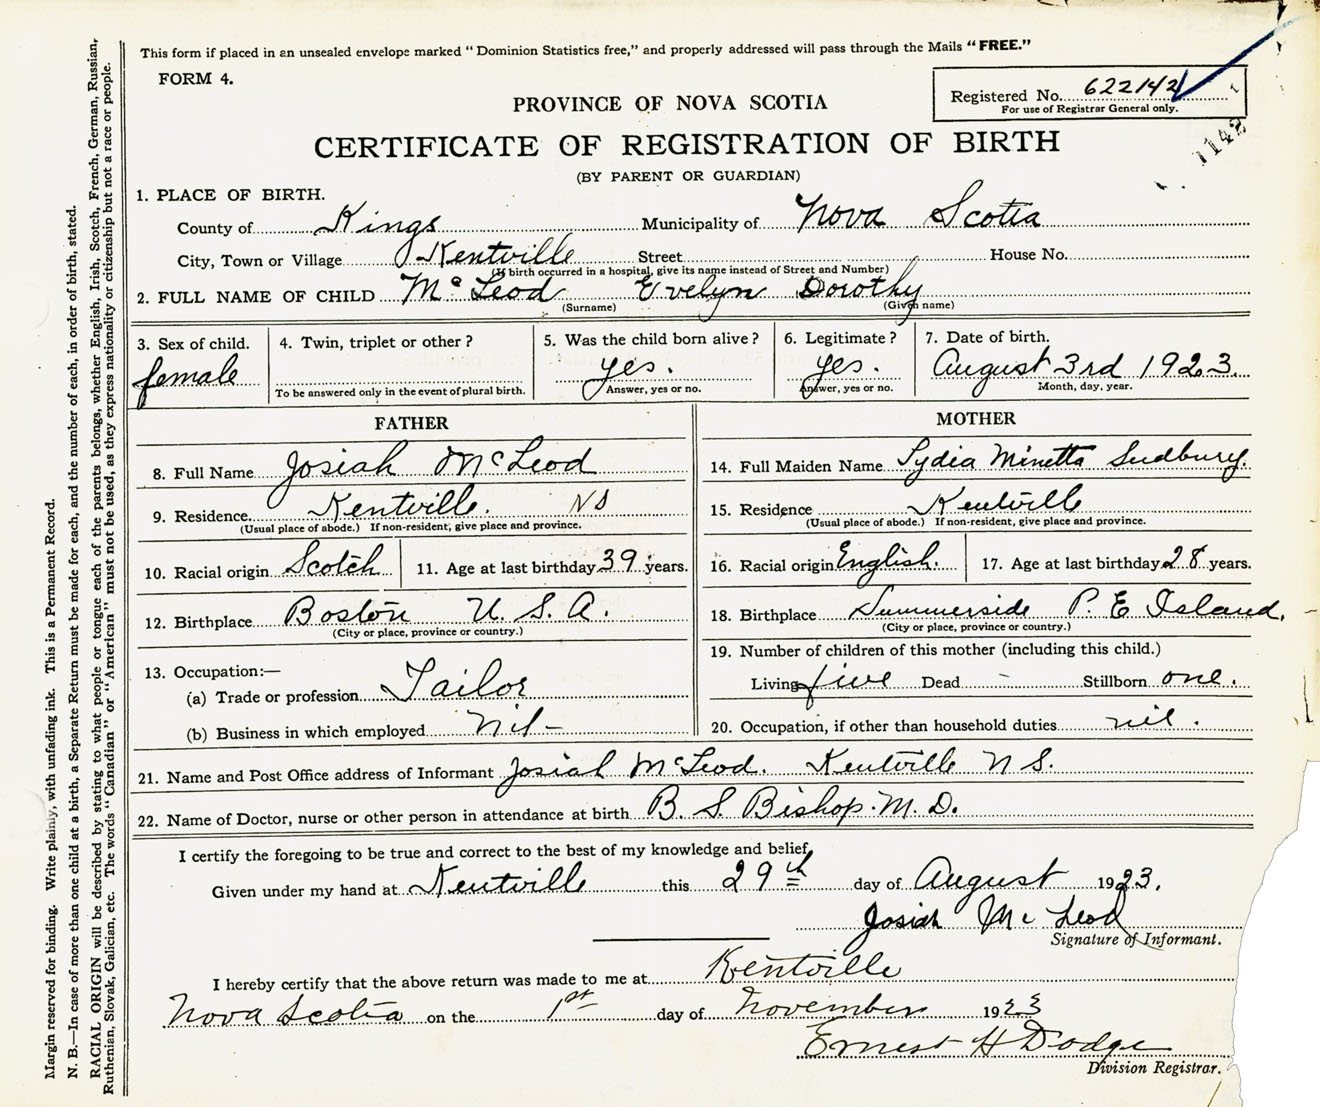 This form if placed in an unsealed envelope marked "Dominion Statistics free," and properly addressed will pass through the Mails "FREE."
FORM 4.
Registered No. 622142
For use of Registrar General only.
1142
PROVINCE OF NOVA SCOTIA
CERTIFICATE OF REGISTRATION OF BIRTH
(BY PARENT OR GUARDIAN)
1. PLACE OF BIRTH.
County of Kings Municipality of Nova Scotia
City, Town or Village Kentville Street House No.
(If birth occurred in a hospital, give its name instead of Street and Number)
2. FULL NAME OF CHILD McLeod Evelyn Dorothy
(Surname) (Given name)
3. Sex of child. 4. Twin, triplet or other? 5. Was the child born alive? 6. Legitimate? 7. Date of birth.
female yes. yes. August 3rd 1923.
To be answered only in the event of plural birth. Answer, yes or no. Answer, yes or no. Month, day, year.
FATHER
8. Full Name Josiah McLeod
9. Residence Kentville. NS
(Usual place of abode.) If non-resident, give place and province.
10. Racial origin Scotch 11. Age at last birthday 39 years.
12. Birthplace Boston U.S.A.
(City or place, province or country.)
13. Occupation:—
(a) Trade or profession Tailor
(b) Business in which employed Nil-
MOTHER
14. Full Maiden Name Lydia Minetta Sudbury.
15. Residence Kentville
(Usual place of abode.) If non-resident, give place and province.
16. Racial origin English. 17. Age at last birthday 28 years.
18. Birthplace Summerside P. E Island.
(City or place, province or country.)
19. Number of children of this mother (including this child.)
Living five Dead - Stillborn one.
20. Occupation, if other than household duties nil.
21. Name and Post Office address of Informant Josiah McLeod. Kentville N S.
22. Name of Doctor, nurse or other person in attendance at birth B. S. Bishop. M. D.
I certify the foregoing to be true and correct to the best of my knowledge and belief,
Given under my hand at Kentville this 29th day of August 1923.
Josiah Mc Leod
Signature of Informant.
I hereby certify that the above return was made to me at Kentville
Nova Scotia on the 1st day of November 1923
Ernest H Dodge
Division Registrar.
Margin reserved for binding. Write plainly, with unfading ink. This is a Permanent Record.
N. B.—In case of more than one child at a birth, a Separate Return must be made for each, and the number of each, in order of birth, stated.
RACIAL ORIGIN will be described by stating to what people or tongue each of the parents belongs, whether English, Irish, Scotch, French, German, Russian,
Ruthenian, Slovak, Galician, etc. The words "Canadian" or "American" must not be used, as they express nationality or citizenship but not a race or people.